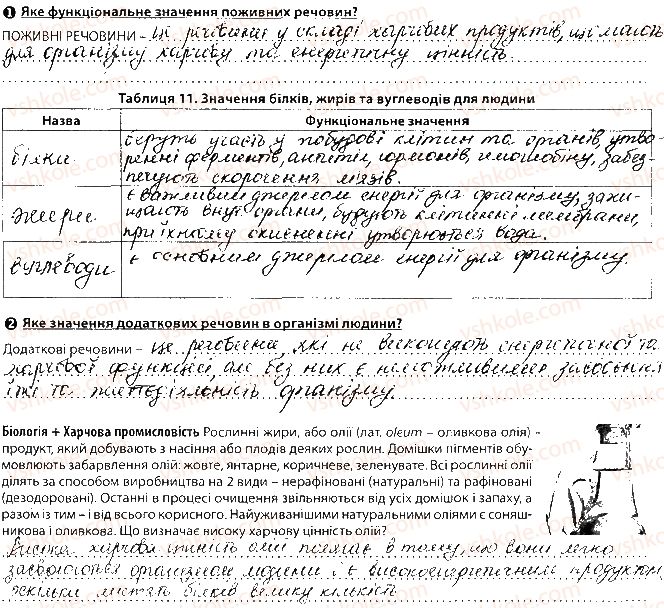 ❶ Яке функціональне значення поживних речовин?
ПОЖИВНІ РЕЧОВИНИ – це речовини у складі харчових продуктів, що мають
для організму харчову та енергетичну цінність.
Таблиця 11. Значення білків, жирів та вуглеводів для людини
Назва Функціональне значення
білки
беруть участь у побудові клітин та органів, утво-
ренні ферментів, антитіл, гормонів, гемоглобіну, забез-
печують скорочення м'язів.
жири
є важливим джерелом енергії для організму, захи-
щають внутр. органи, будують клітинні мембрани,
при їхньому окисненні утворюється вода.
вуглеводи є основним джерелом енергії для організму.
❷ Яке значення додаткових речовин в організмі людини?
Додаткові речовини – це речовини, які не виконують енергетичної та
харчової функцій, але без них є неможливими засвоєння
їжі та життєдіяльність організму.
Біологія + Харчова промисловість Рослинні жири, або олії (лат. oleum – оливкова олія) –
продукт, який добувають з насіння або плодів деяких рослин. Домішки пігментів обу-
мовлюють забарвлення олій: жовте, янтарне, коричневе, зеленувате. Всі рослинні олії
ділять за способом виробництва на 2 види – нерафіновані (натуральні) та рафіновані
(дезодоровані). Останні в процесі очищення звільняються від усіх домішок і запаху, а
разом із тим – і від всього корисного. Найуживанішими натуральними оліями є соняш-
никова і оливкова. Що визначає високу харчову цінність олій?
Висока харчова цінність олії полягає в тому, що вони легко
засвоюються організмом людини і є високоенергетичним продуктом,
оскільки містять білків велику кількість